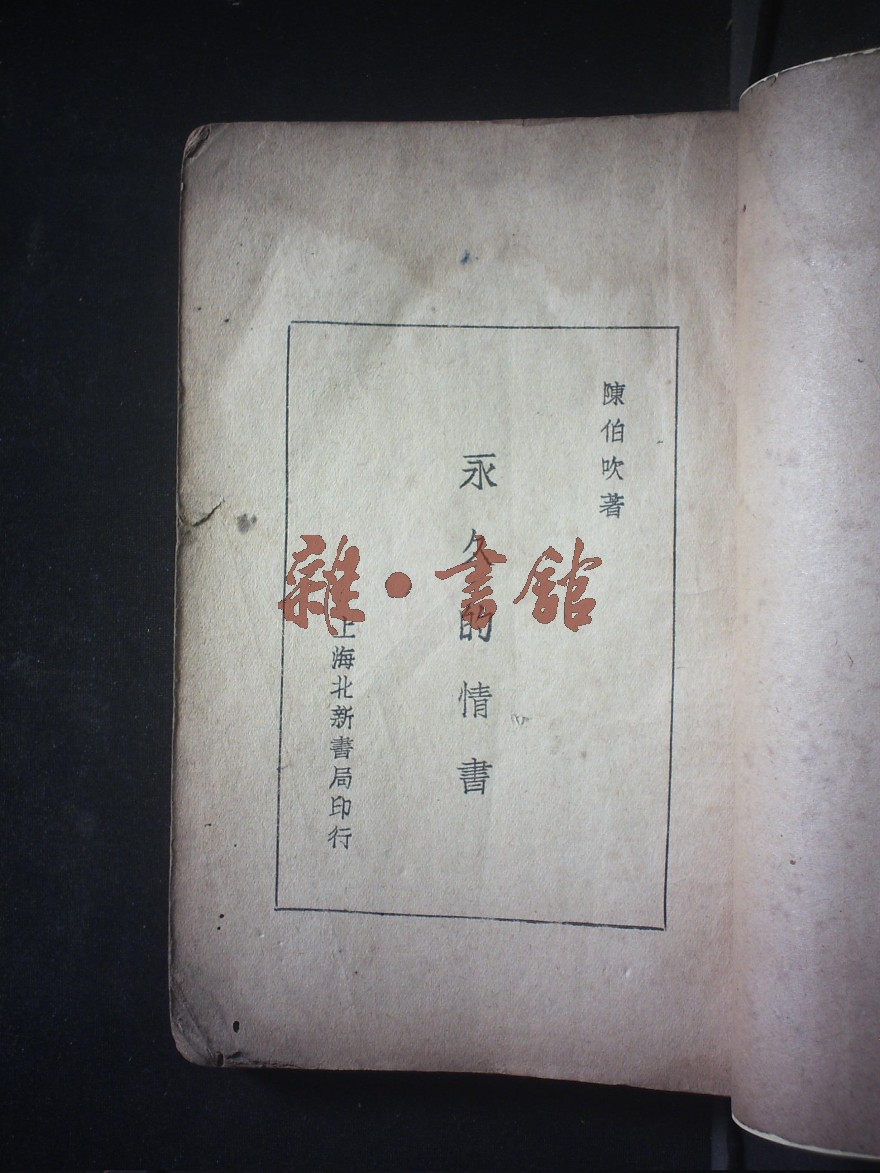 陳伯吹著
永久的情書
上海北新書局印行
雜·書館